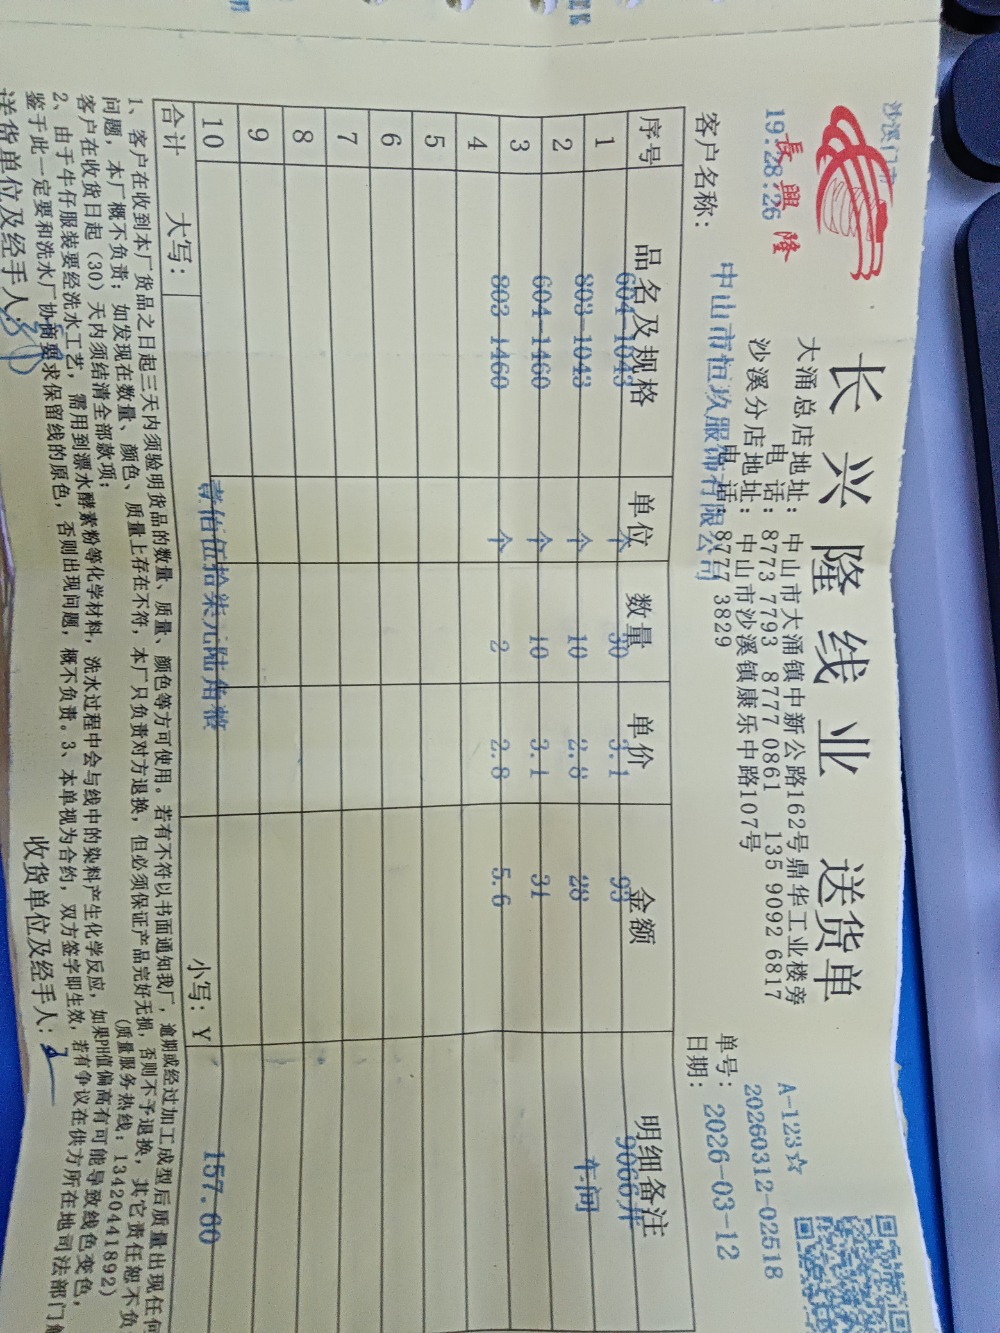 沙溪门市
長興隆
19:28:26
长兴隆线业 送货单
大涌总店地址：中山市大涌镇中新公路162号鼎华工业楼旁
电 话：8773 7793 8777 0861 135 9092 6817
沙溪分店地址：中山市沙溪镇康乐中路107号
电 话：8777 3829
A-123☆
单号：20260312-02518
日期：2026-03-12
客户名称：中山市恒玖服饰有限公司
序号 品名及规格 单位 数量 单价 金额 明细备注
1 604-1043 个 30 3.1 93 9066弄
2 803-1043 个 10 2.8 28 车间
3 604-1460 个 10 3.1 31
4 803-1460 个 2 2.8 5.6
5
6
7
8
9
10
合计 大写：壹佰伍拾柒元陆角整 小写：Y 157.60
1、客户在收到本厂货品之日起三天内须验明货品的数量、质量、颜色等方可使用。若有不符以书面通知我厂，逾期或经过加工成型后质量出现任何
问题，本厂概不负责；如发现在数量、颜色、质量上存在不符，本厂只负责对方退换，但必须保证产品完好无损，否则不予退换，其它责任恕不负
客户在收货日起（30）天内须结清全部款项； (质量服务热线：13420441892)
2、由于牛仔服装要经洗水工艺，需用到漂水酵素粉等化学材料，洗水过程中会与线中的染料产生化学反应，如果PH值偏高有可能导致线色变色，
鉴于此一定要和洗水厂协商要求保留线的原色，否则出现问题，概不负责。3、本单视为合约，双方签字即生效，若有争议在供方所在地司法部门
送货单位及经手人： 收货单位及经手人：